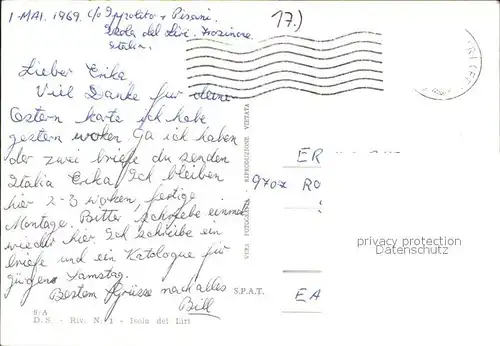 1 MAI. 1969. c/o Ippolito + Pisani.
Isola del Liri. Frosinone
Italia.
17.)
Lieber Erika
Viel Danke für deine
Ostern karte ich habe
gestern woken. Ja ich haben
der zwei briefe du senden
Italia Erika. Ich bleiben
hier 2-3 woken, fertige
Montage. Bitter schriebe einmal
wieder hier. Ich schreibe ein
briefe und ein Katologue für
jürgens Samstag.
Bestem Grüsse nach alles
Bill
VERA FOTOGRAFIA - RIPRODUZIONE VIETATA
S.P.A.T.
D. S. - Riv. N. 1 - Isola del Liri
ER
9707 RO
EA
privacy protection
Datenschutz